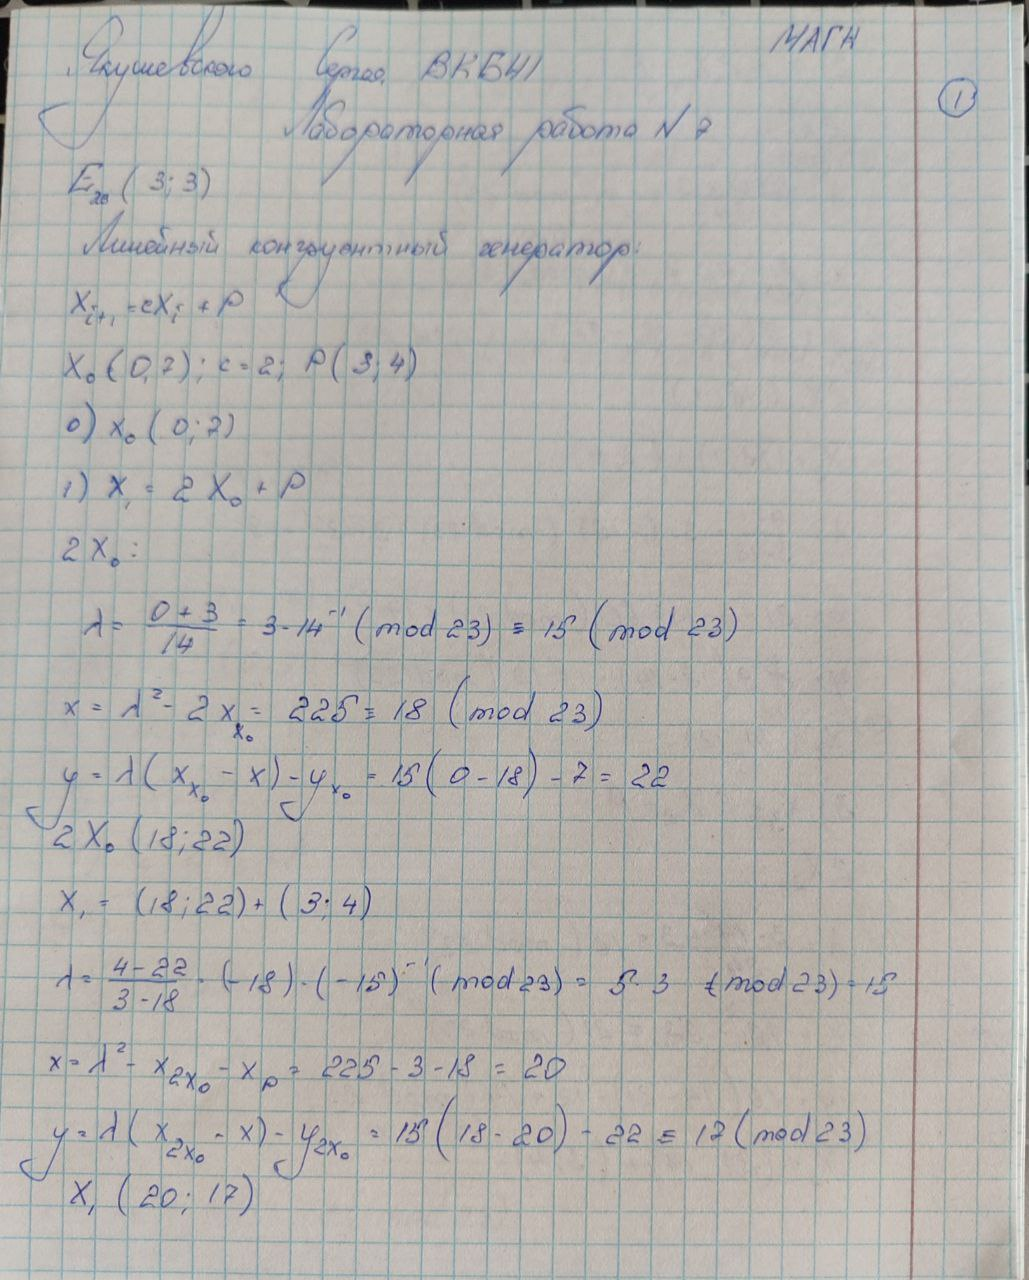 МАГИ
Якушевского Сергея ВКБ41
1
Лабораторная работа N 7
E₂₃ (3; 3)
Линейный конгруентный генератор:
Xᵢ₊₁ = cXᵢ + P
X₀ (0,7); c = 2; P(3; 4)
0) x₀ (0; 7)
1) X₁ = 2 X₀ + P
2 X₀ :
λ = (0 + 3)/14 = 3 · 14⁻¹ (mod 23) ≡ 15 (mod 23)
x = λ² - 2 x_x₀ = 225 ≡ 18 (mod 23)
y = λ( x_x₀ - x) - y_x₀ = 15(0 - 18) - 7 = 22
2 X₀ (18; 22)
X₁ = (18; 22) + (3; 4)
λ = (4 - 22)/(3 - 18) · (-18) · (-15)⁻¹ (mod 23) = 5 · 3 (mod 23) = 15
x = λ² - x_2X₀ - x_P = 225 - 3 - 18 = 20
y = λ( x_2X₀ - x) - y_2X₀ = 15(18 - 20) - 22 ≡ 17 (mod 23)
X₁ (20; 17)